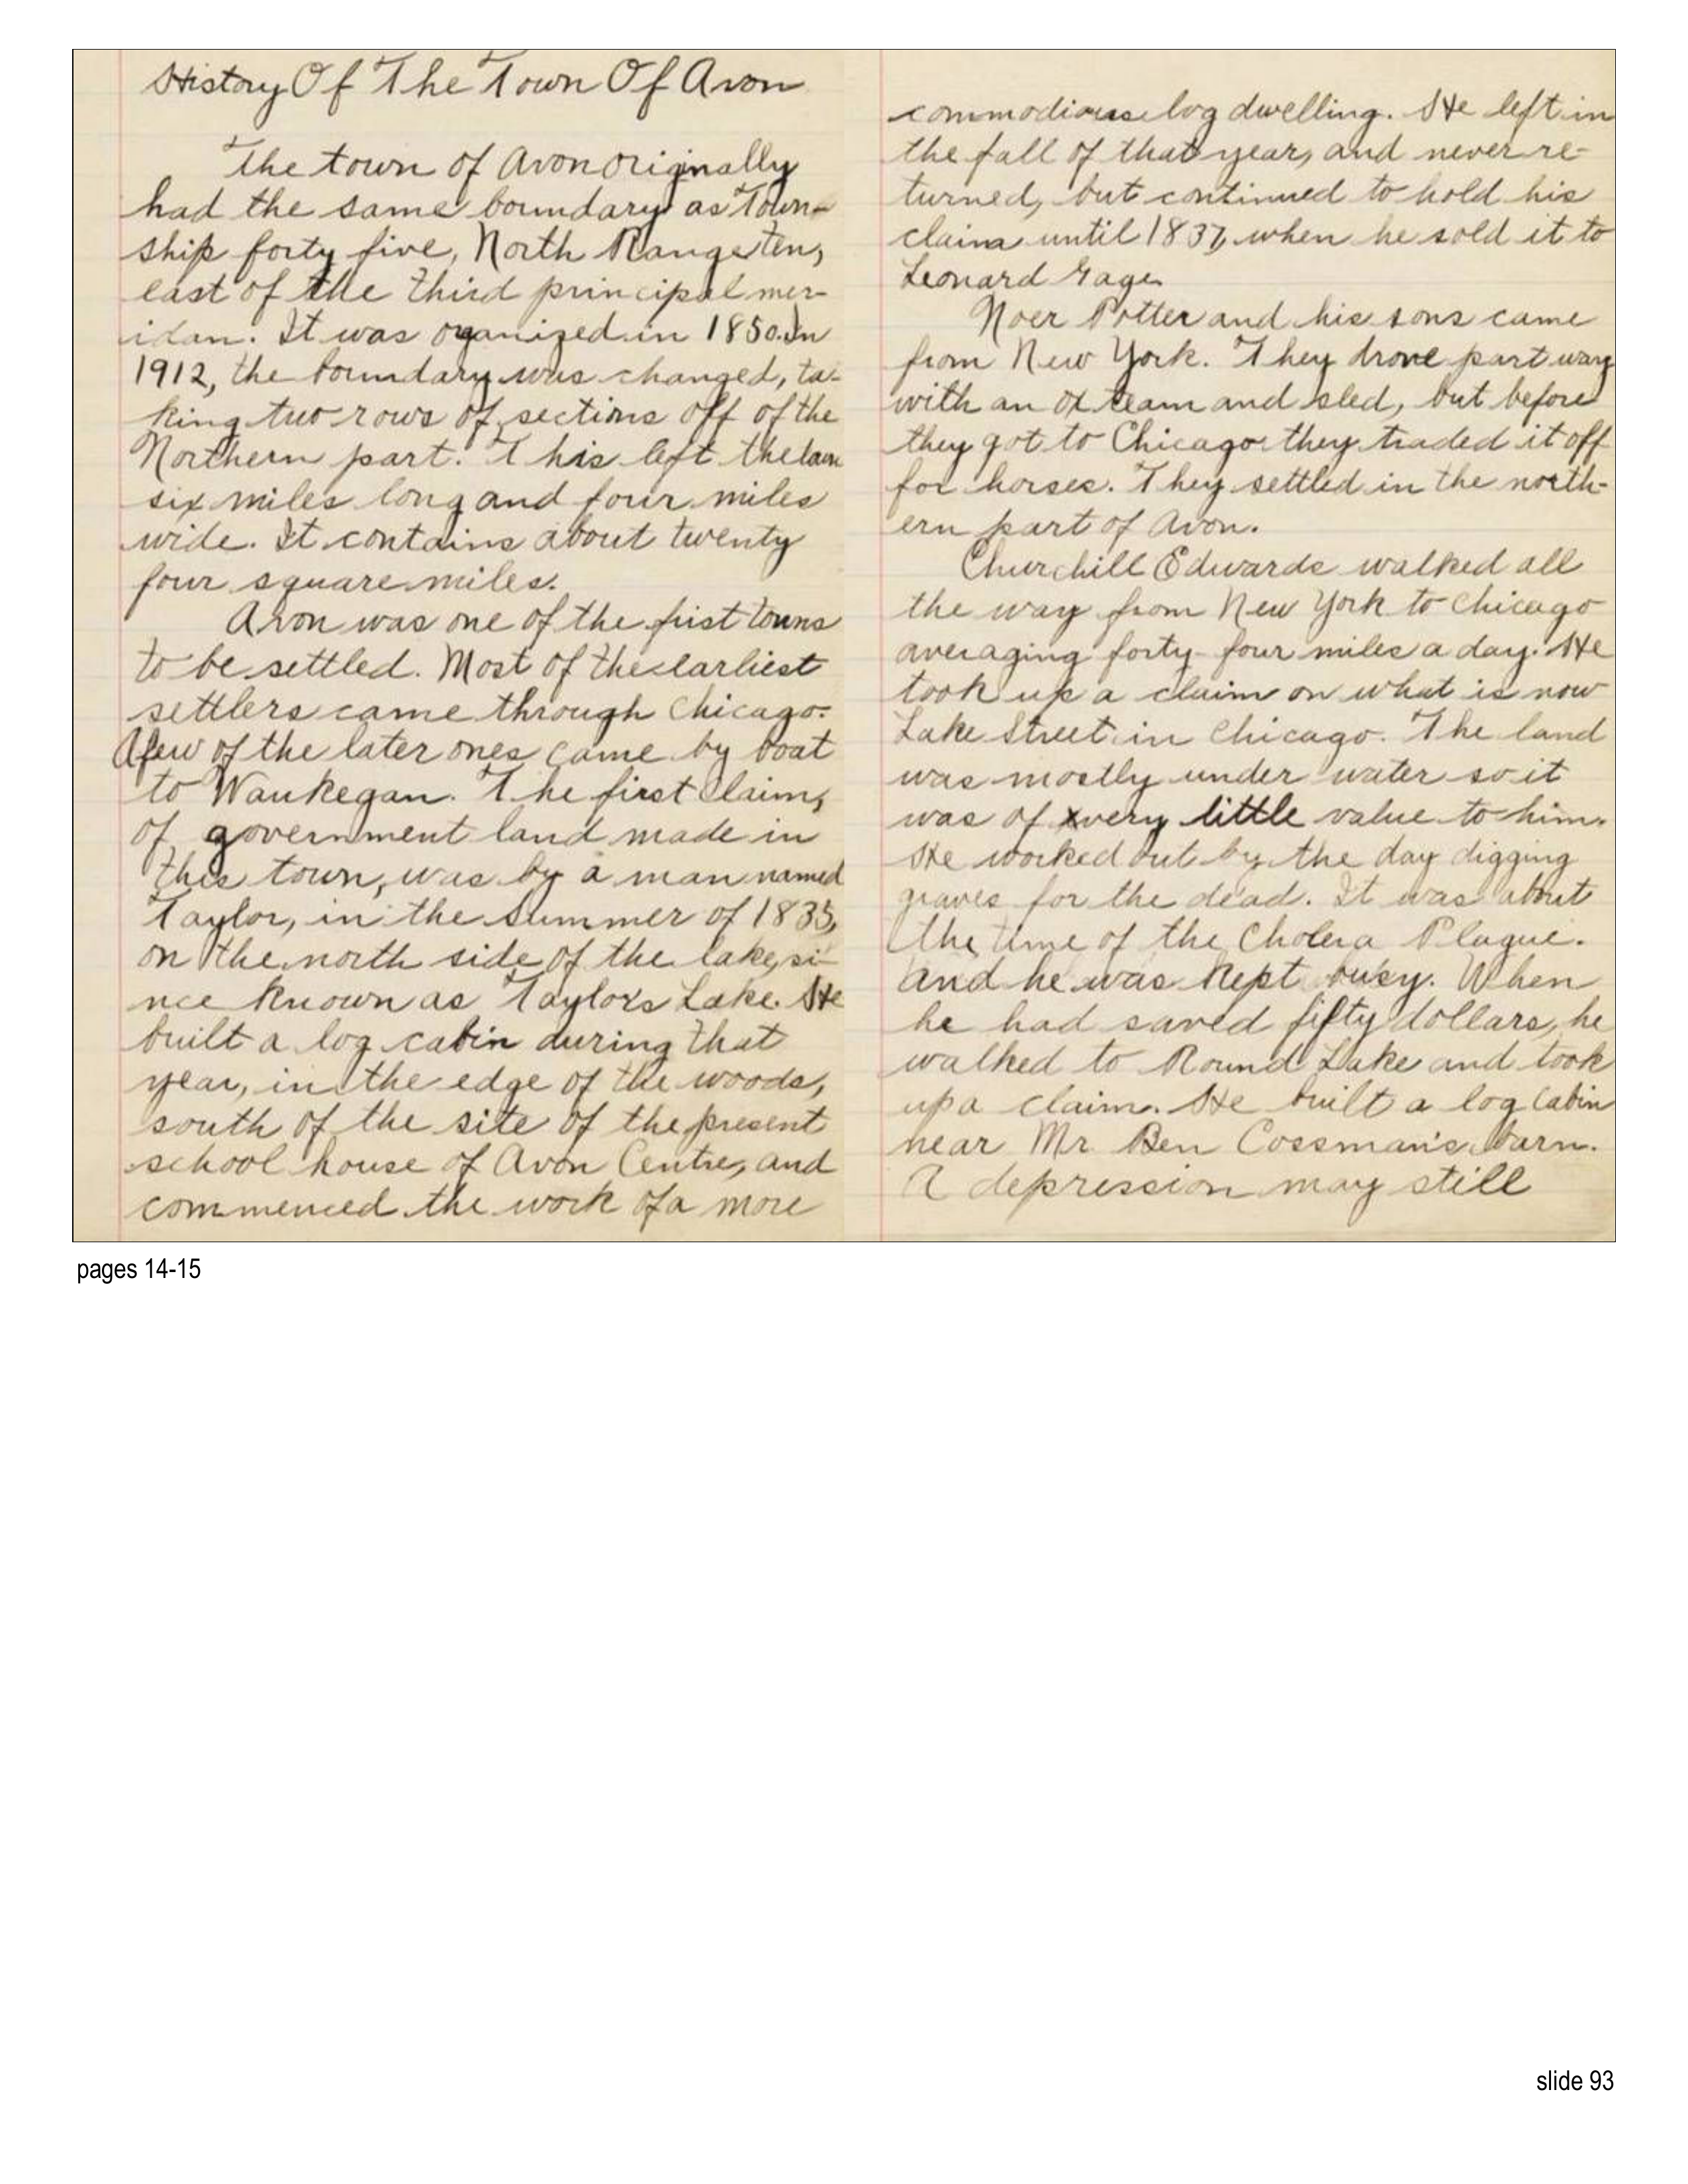 History Of The Town Of Avon
The town of Avon originally
had the same boundary as Town-
ship forty five, North Range ten,
east of the third principal mer-
idan. It was organized in 1850. In
1912, the boundary was changed, ta-
king two rows of sections off of the
Northern part. This left the town
six miles long and four miles
wide. It contains about twenty
four square miles.
Avon was one of the first towns
to be settled. Most of the earliest
settlers came through Chicago.
A few of the later ones came by boat
to Waukegan. The first claim,
of government land made in
this town, was by a man named
Taylor, in the summer of 1835,
on the north side of the lake, si-
nce known as Taylor's Lake. He
built a log cabin during that
year, in the edge of the woods,
south of the site of the present
school house of Avon Centre, and
commenced the work of a more
commodious log dwelling. He left in
the fall of that year, and never re-
turned, but continued to hold his
claim until 1837, when he sold it to
Leonard Gage.
Noer Potter and his sons came
from New York. They drove part way
with an ox team and sled, but before
they got to Chicago they traded it off
for horses. They settled in the north-
ern part of Avon.
Churchill Edwards walked all
the way from New York to Chicago
averaging forty-four miles a day. He
took up a claim on what is now
Lake Street in Chicago. The land
was mostly under water so it
was of very little value to him.
He worked out by the day digging
graves for the dead. It was about
the time of the Cholera Plague.
and he was kept busy. When
he had saved fifty dollars, he
walked to Round Lake and took
up a claim. He built a log cabin
near Mr. Ben Cossman's barn.
A depression may still
pages 14-15
slide 93